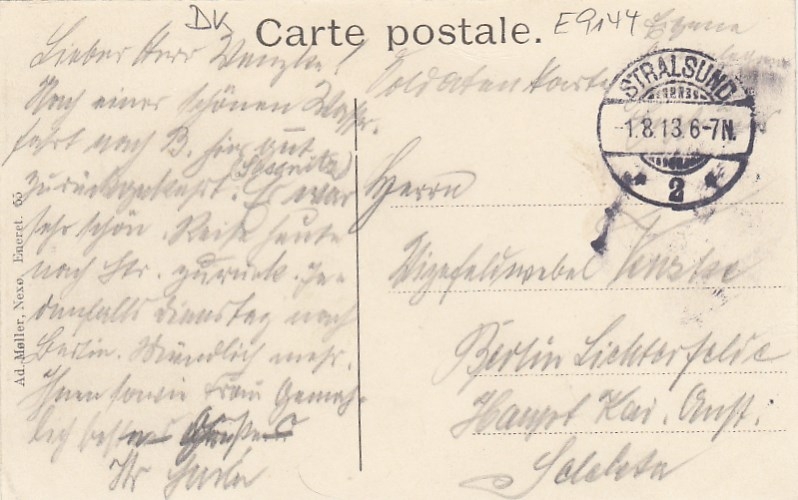 DK
Carte postale.
E9144
Lieber Herr Venzke!
Nach einer schönen Wasser-
fahrt nach B. hier gut
(Sassnitz)
zurückgekehrt. Es war
sehr schön. Reise heute
nach Str. zurück. Je-
denfalls Dienstag nach
Berlin. Mündlich mehr.
Ihnen sowie Frau Gemah-
lich besten
Ihr
Ad. Møller, Nexø. Eneret. 65
Soldatenkarte
STRALSUND
1.8.13.6-7N.
* 2 *
Herrn
Vizefeldwebel Venzke
Berlin Lichterfelde
Haupt Kad. Anst.